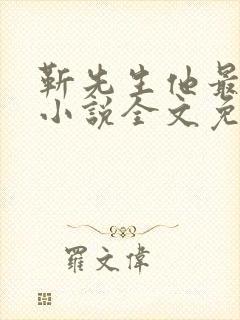 靳先生他最
小說全文免
羅文偉